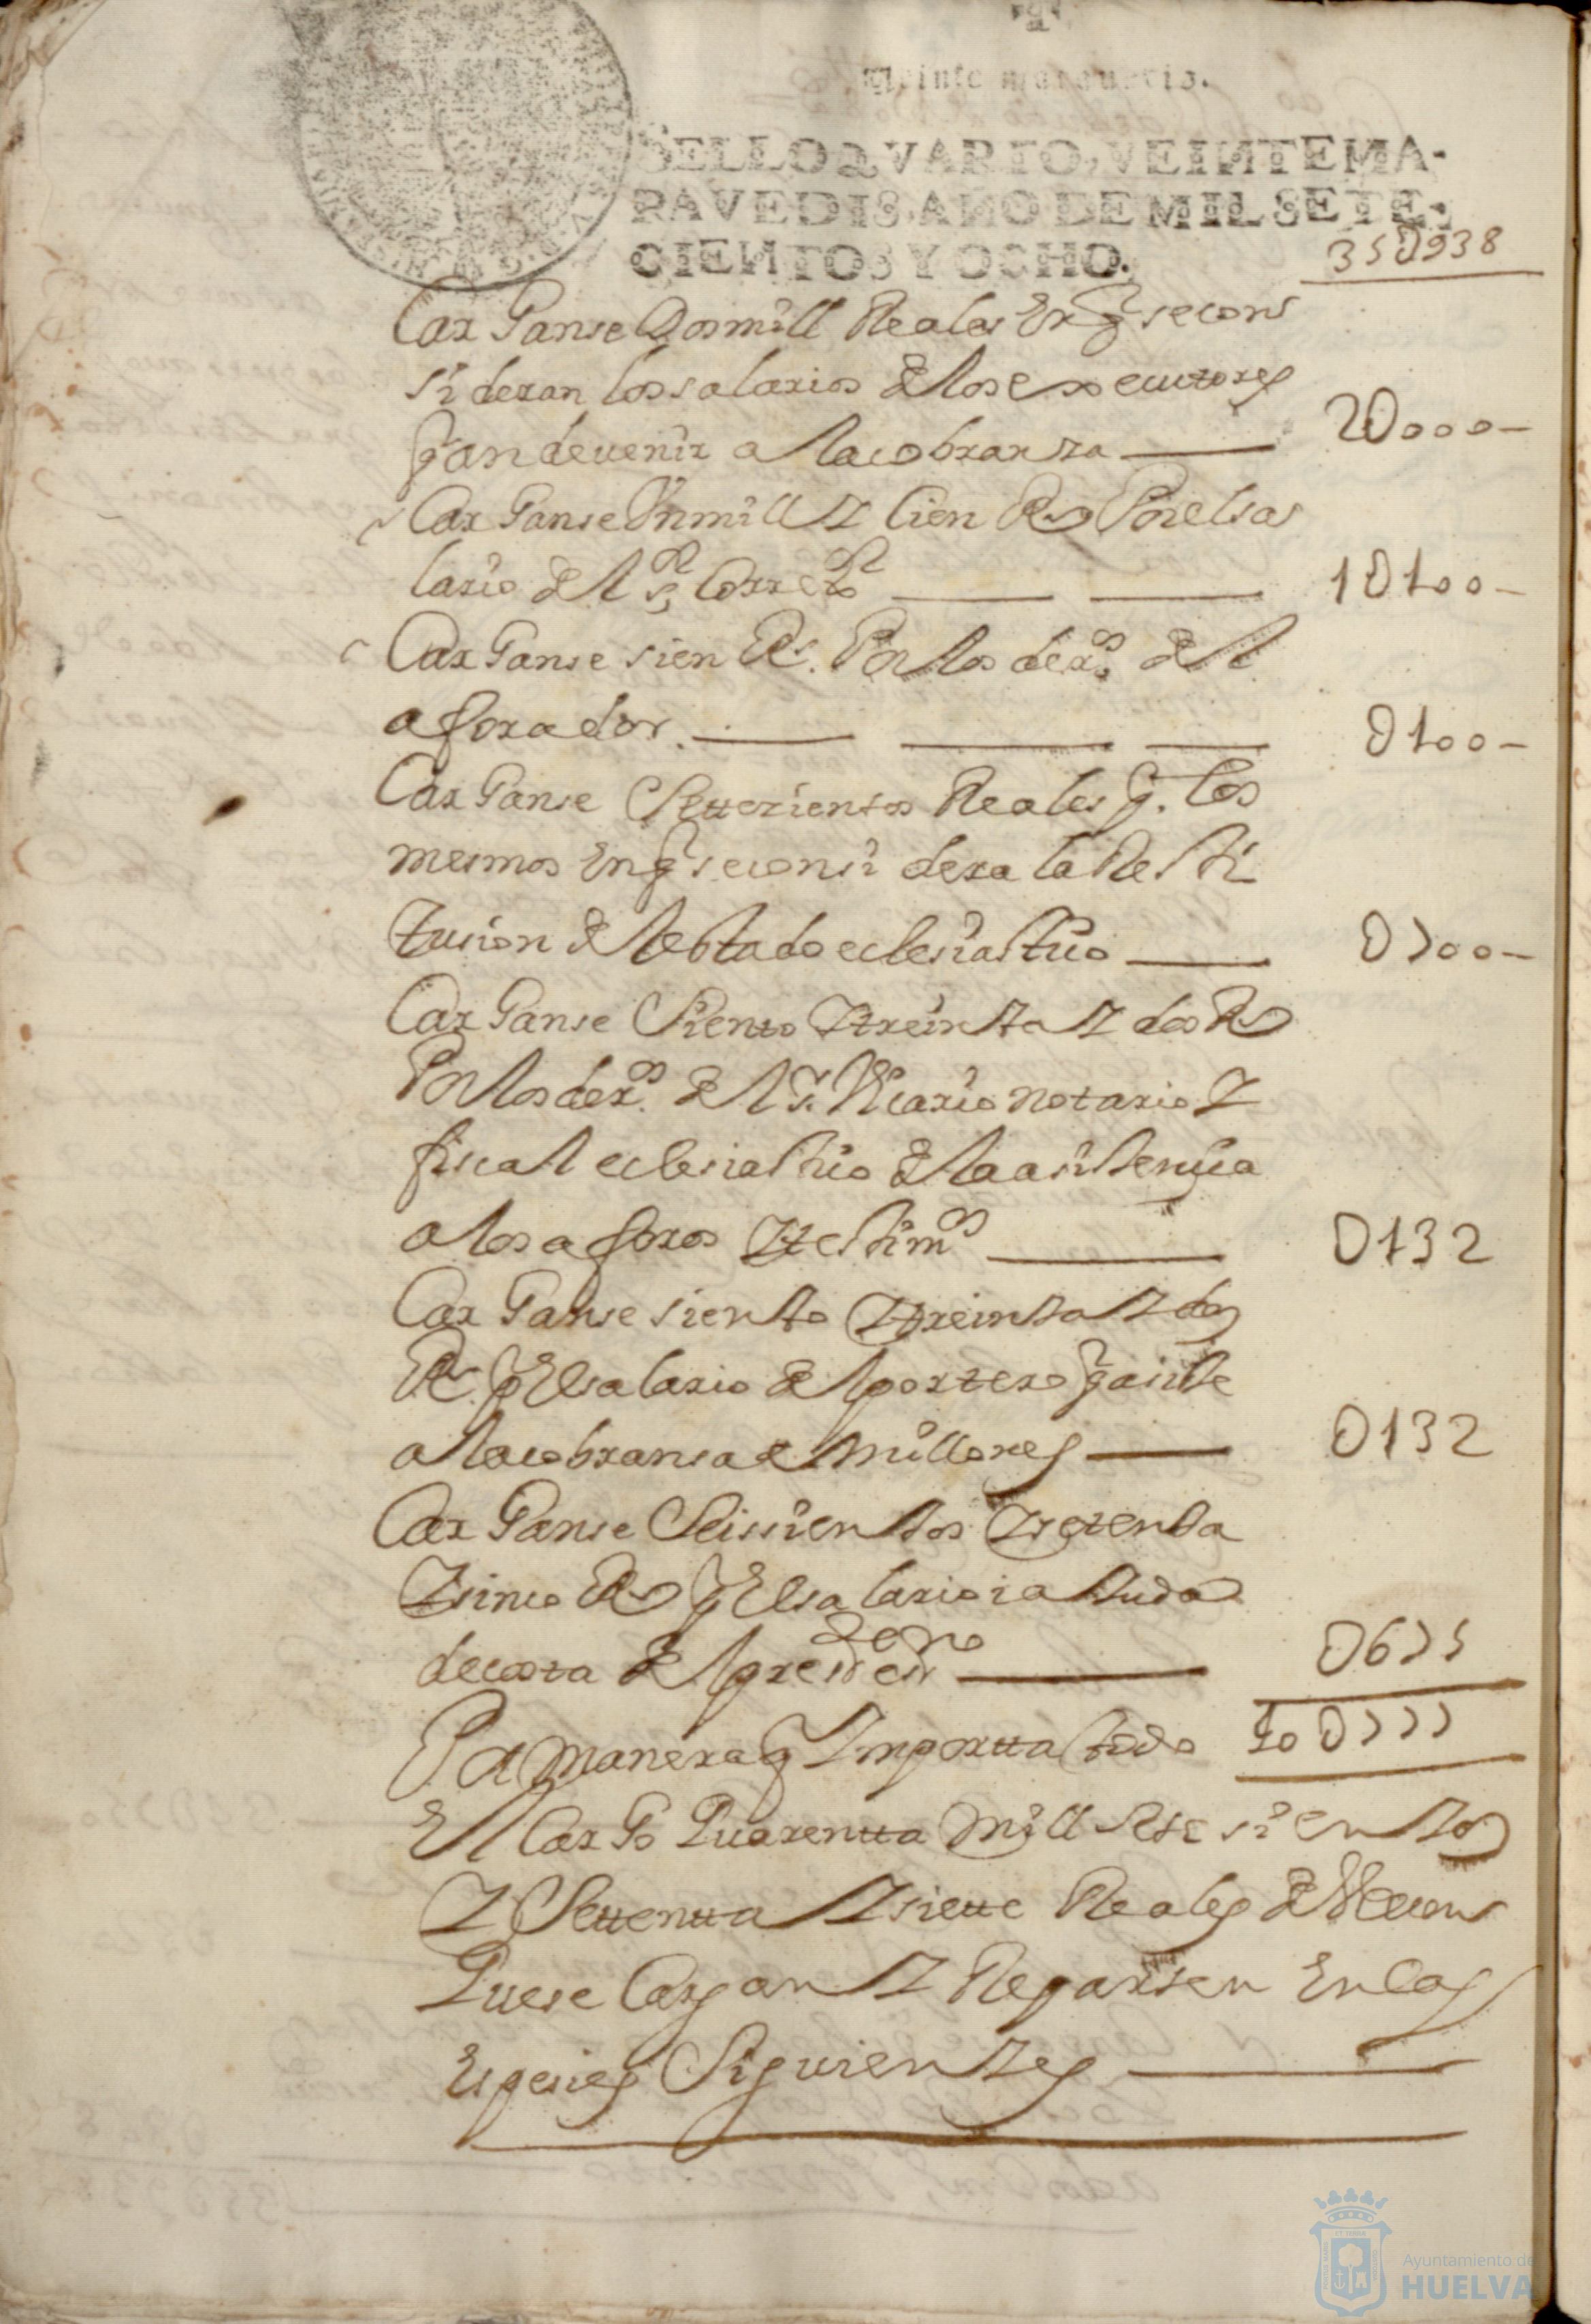 Veinte maravedis.
SELLO QVARTO, VEINTE MA-
RAVEDIS, AÑO DE MIL SETE-
CIENTOS Y OCHO.
35U938
Carganse Dosmill Reales En q̃ secons
sideran los salarios de los executores
q̃ an de uenir a la cobranza 2U000-
Carganse Vn mill y Cien Rs Por el sa
lario del Sr Correxor 1U100-
Carganse sien Rs. Por los deros del
aforador. U100-
Carganse Settezientos Reales q̃. los
mesmos En q̃ se consi dera la Resti
tusion del estado eclesiastico U700-
Carganse Siento y treinta y dos Rs
Por los deros. del Sr. Vicario notario y
fiscal eclesiastico de la asistensia
a los aforos y testimos U132
Carganse siento y treinta y dos
Rs. p El salario del portero q̃ asiste
a la cobransa de millones U132
Carganse Seissientos y setenta
y sinco Rs p El salario i a iuda
de costa del preste escno U675
P. de manera q̃ Importta todo 40U777
El Cargo Quarentta mill sete sientos
y Settentta y siette Reales de Vellon
Que se Cargan y Reparten En las
Espesies Siguientes
Ayuntamiento de
HUELVA